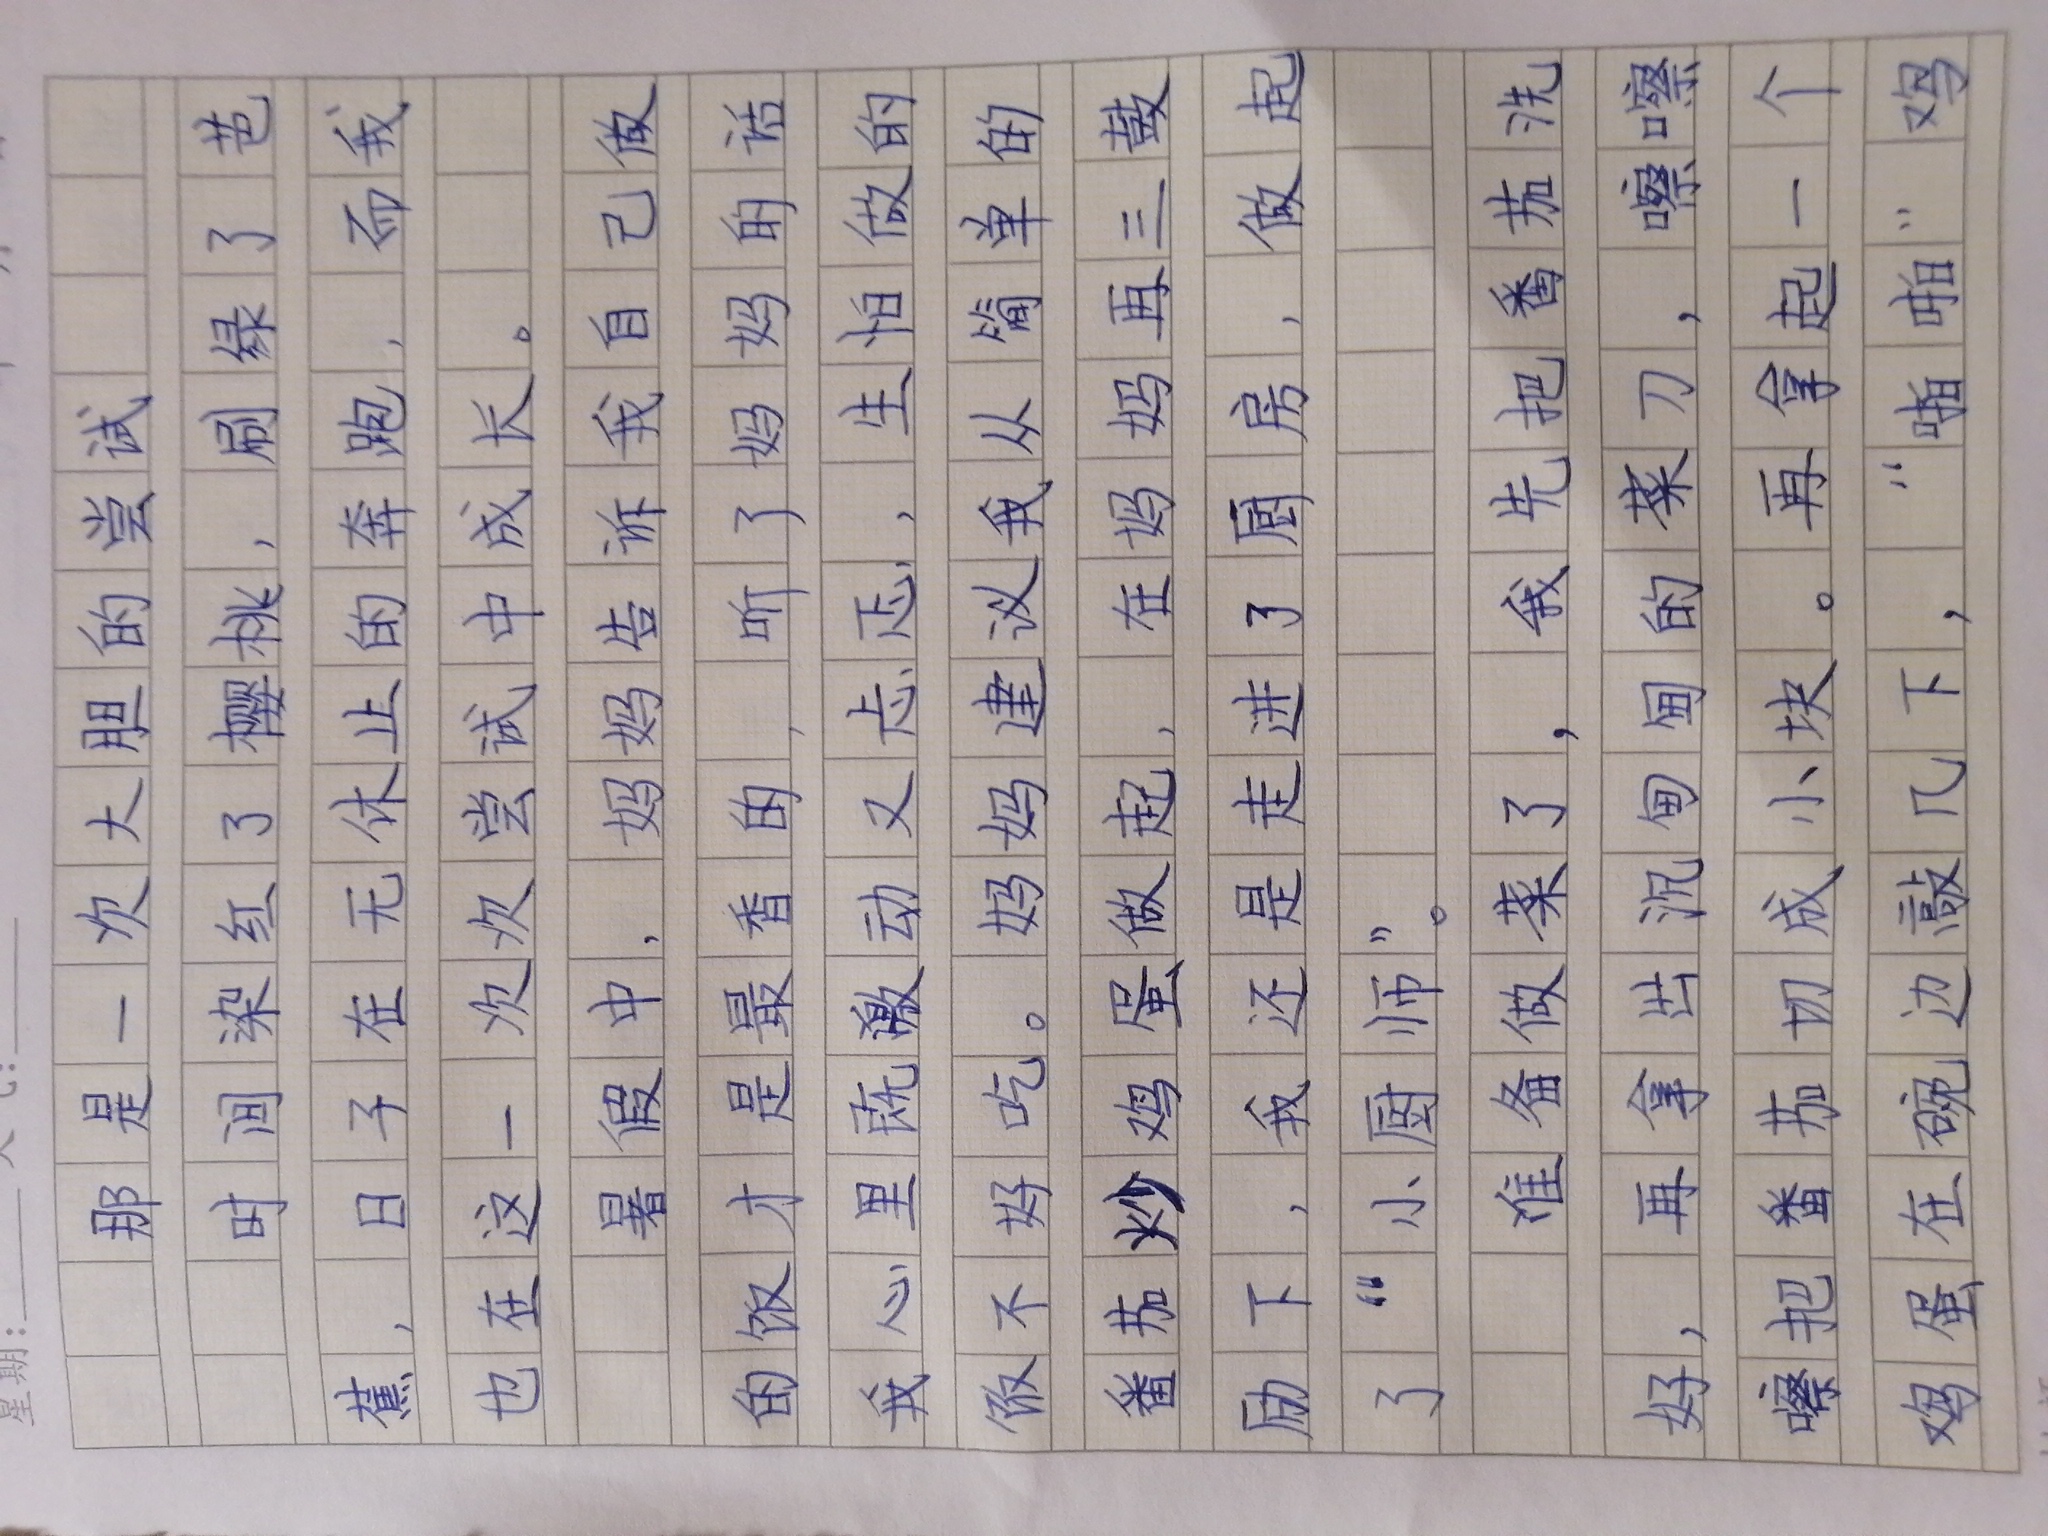 星期:
那是一次大胆的尝试
时间染红了樱桃，刷绿了芭
蕉，日子在无休止的奔跑，而我
也在这一次次尝试中成长。
暑假中，妈妈告诉我自己做
的饭才是最香的，听了妈妈的话
我心里既激动又忐忑，生怕做的
饭不好吃。妈妈建议我从简单的
番茄炒鸡蛋做起，在妈妈再三鼓
励下，我还是走进了厨房，做起
了“小厨师”。
准备做菜了，我先把番茄洗
好，再拿出沉甸甸的菜刀，嚓嚓
嚓把番茄切成小块。再拿起一个
鸡蛋在碗边敲几下，“啪啪”鸡